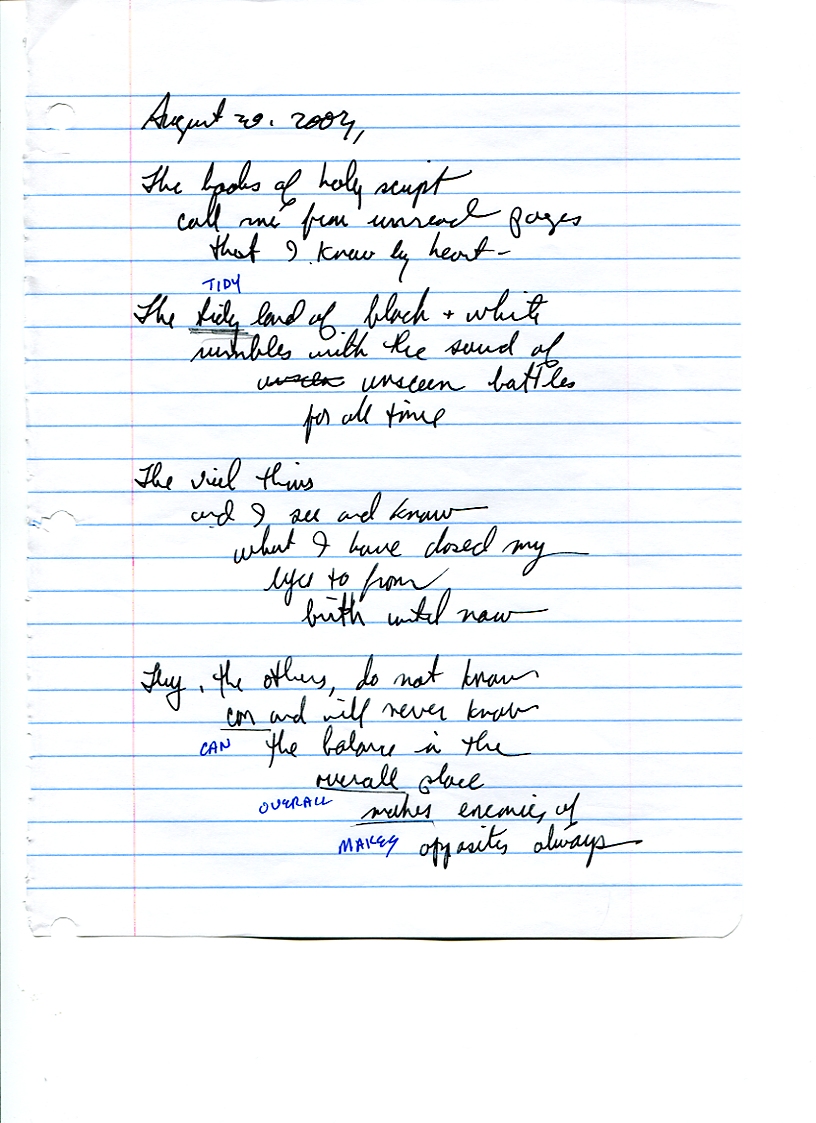 August 29. 2004,
The books of holy script
call me from unread pages
that I know by heart -
TIDY
The tidy land of black + white
rumbles with the sound of
unseen unseen battles
for all time
The viel thins
and I see and know
what I have closed my
eyes to from
birth until now
They, the others, do not know
can and will never know
CAN the balance in the
overall place
OVERALL makes enemies of
MAKES opposites always